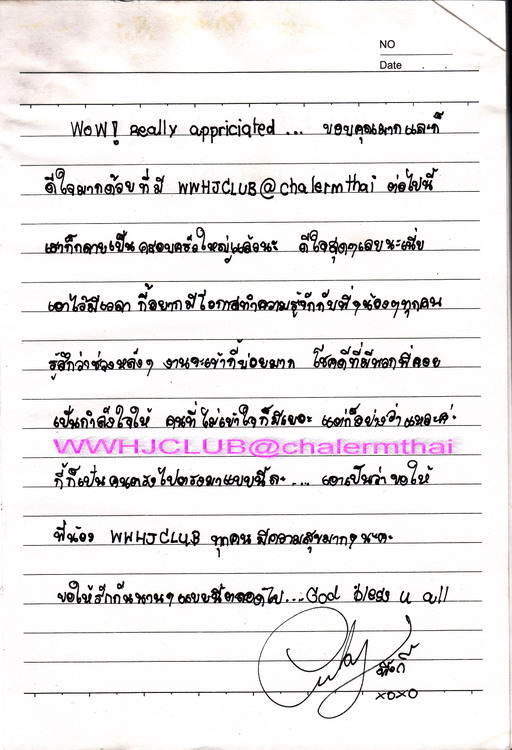 NO
Date
WoW! Really appriciated ... ขอบคุณมากและก็
ดีใจมากด้วยที่มี WWHJCLUB@chalermthai ต่อไปนี้
เราก็กลายเป็นครอบครัวใหญ่แล้วนะ ดีใจสุดๆเลยนะเนี่ย
เอาไว้มีเวลา กี้อยากมีโอกาสทำความรู้จักกับพี่ๆน้องๆทุกคน
รู้สึกว่าช่วงหลังๆ งานจะเข้ากี้บ่อยมาก โชคดีที่มีพวกพี่คอย
เป็นกำลังใจให้ คนที่ไม่เข้าใจก็มีเยอะ แต่ก็อย่างว่าแหละค่ะ
WWHJCLUB@chalermthai
กี้ก็เป็นคนตรงไปตรงมาแบบนี้ละ .... เอาเป็นว่า ขอให้
พี่น้อง WWHJCLUB ทุกคน มีความสุขมากๆนะคะ
ขอให้รักกันนานๆแบบนี้ตลอดไป...God bless u all
xoxo